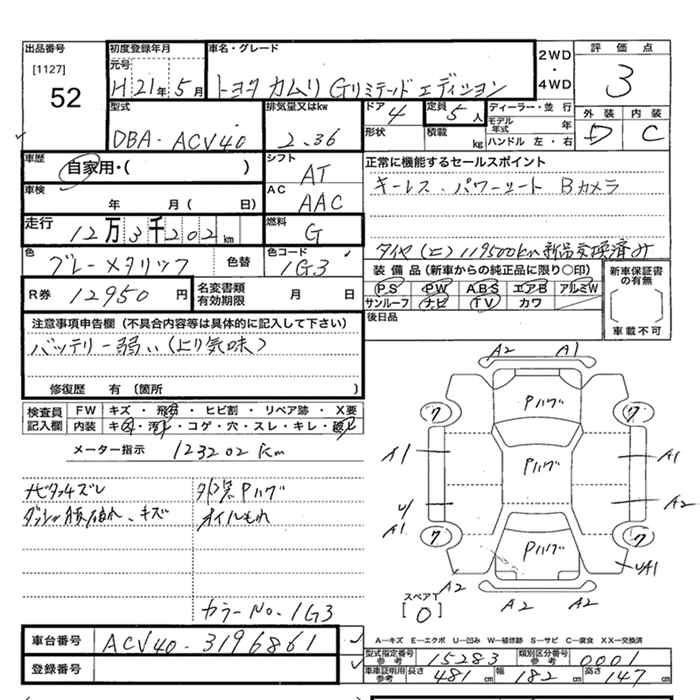 出品番号
[1127]
52
初度登録年月
元号
H21年5月
車名・グレード
トヨタ カムリ Gリミテッド エディション
2WD
・
4WD
評価点
3
外装 内装
D C
型式
DBA-ACV40
排気量又はkw
2.36
ドア 4
定員 5人
ディーラー・並行
モデル年式 年
ハンドル 左・右
形状
積載 kg
車歴
自家用・( )
シフト
AT
車検
年 月( 日)
AC
AAC
正常に機能するセールスポイント
キーレス・パワーシート Bカメラ
タイヤ(ヒ)119500km新品交換済み
走行
12万3千202km
燃料
G
色
グレーメタリック
色替
色コード
1G3
装備品(新車からの純正品に限り○印)
PS PW ABS エアB アルミW
サンルーフ ナビ TV カワ
新車保証書の有無
[ ]
車載不可
R券
12950円
名変書類有効期限
月 日
後日品
注意事項申告欄(不具合内容等は具体的に記入して下さい)
バッテリー弱い(上り気味)
修復歴 有(箇所 )
検査員記入欄
FW キズ・飛石・ヒビ割・リペア跡・X要
内装 キズ・汚れ・コゲ・穴・スレ・キレ・破れ
メーター指示 123202km
外装Pハゲ
オイルもれ
カラーNo. 1G3
A2 A1
Pハゲ
ワ ワ
A1 Pハゲ A1
U A2
A1
ワ Pハゲ ワ
A2 UA1
A2 A2
スペアT
[0]
車台番号
ACV40-3196861
登録番号
A—キズ E—エクボ U—凹み W—補修跡 S—サビ C—腐食 XX—交換済
型式指定番号 参考 15283 類別区分番号 参考 0001
車車証明用 参考 長さ 481cm 幅 182cm 高さ 147cm